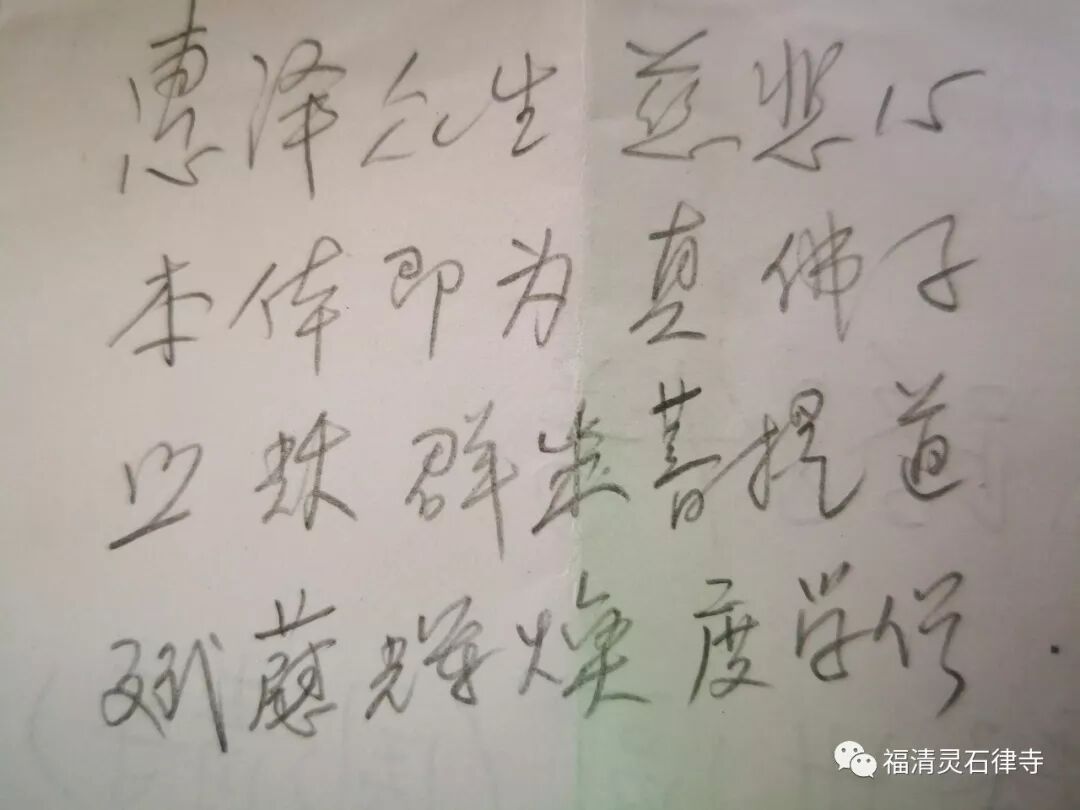 惠泽众生慈悲心
本体即为真佛子
群生菩提道
斌慧辉焕度学僧
福清灵石律寺